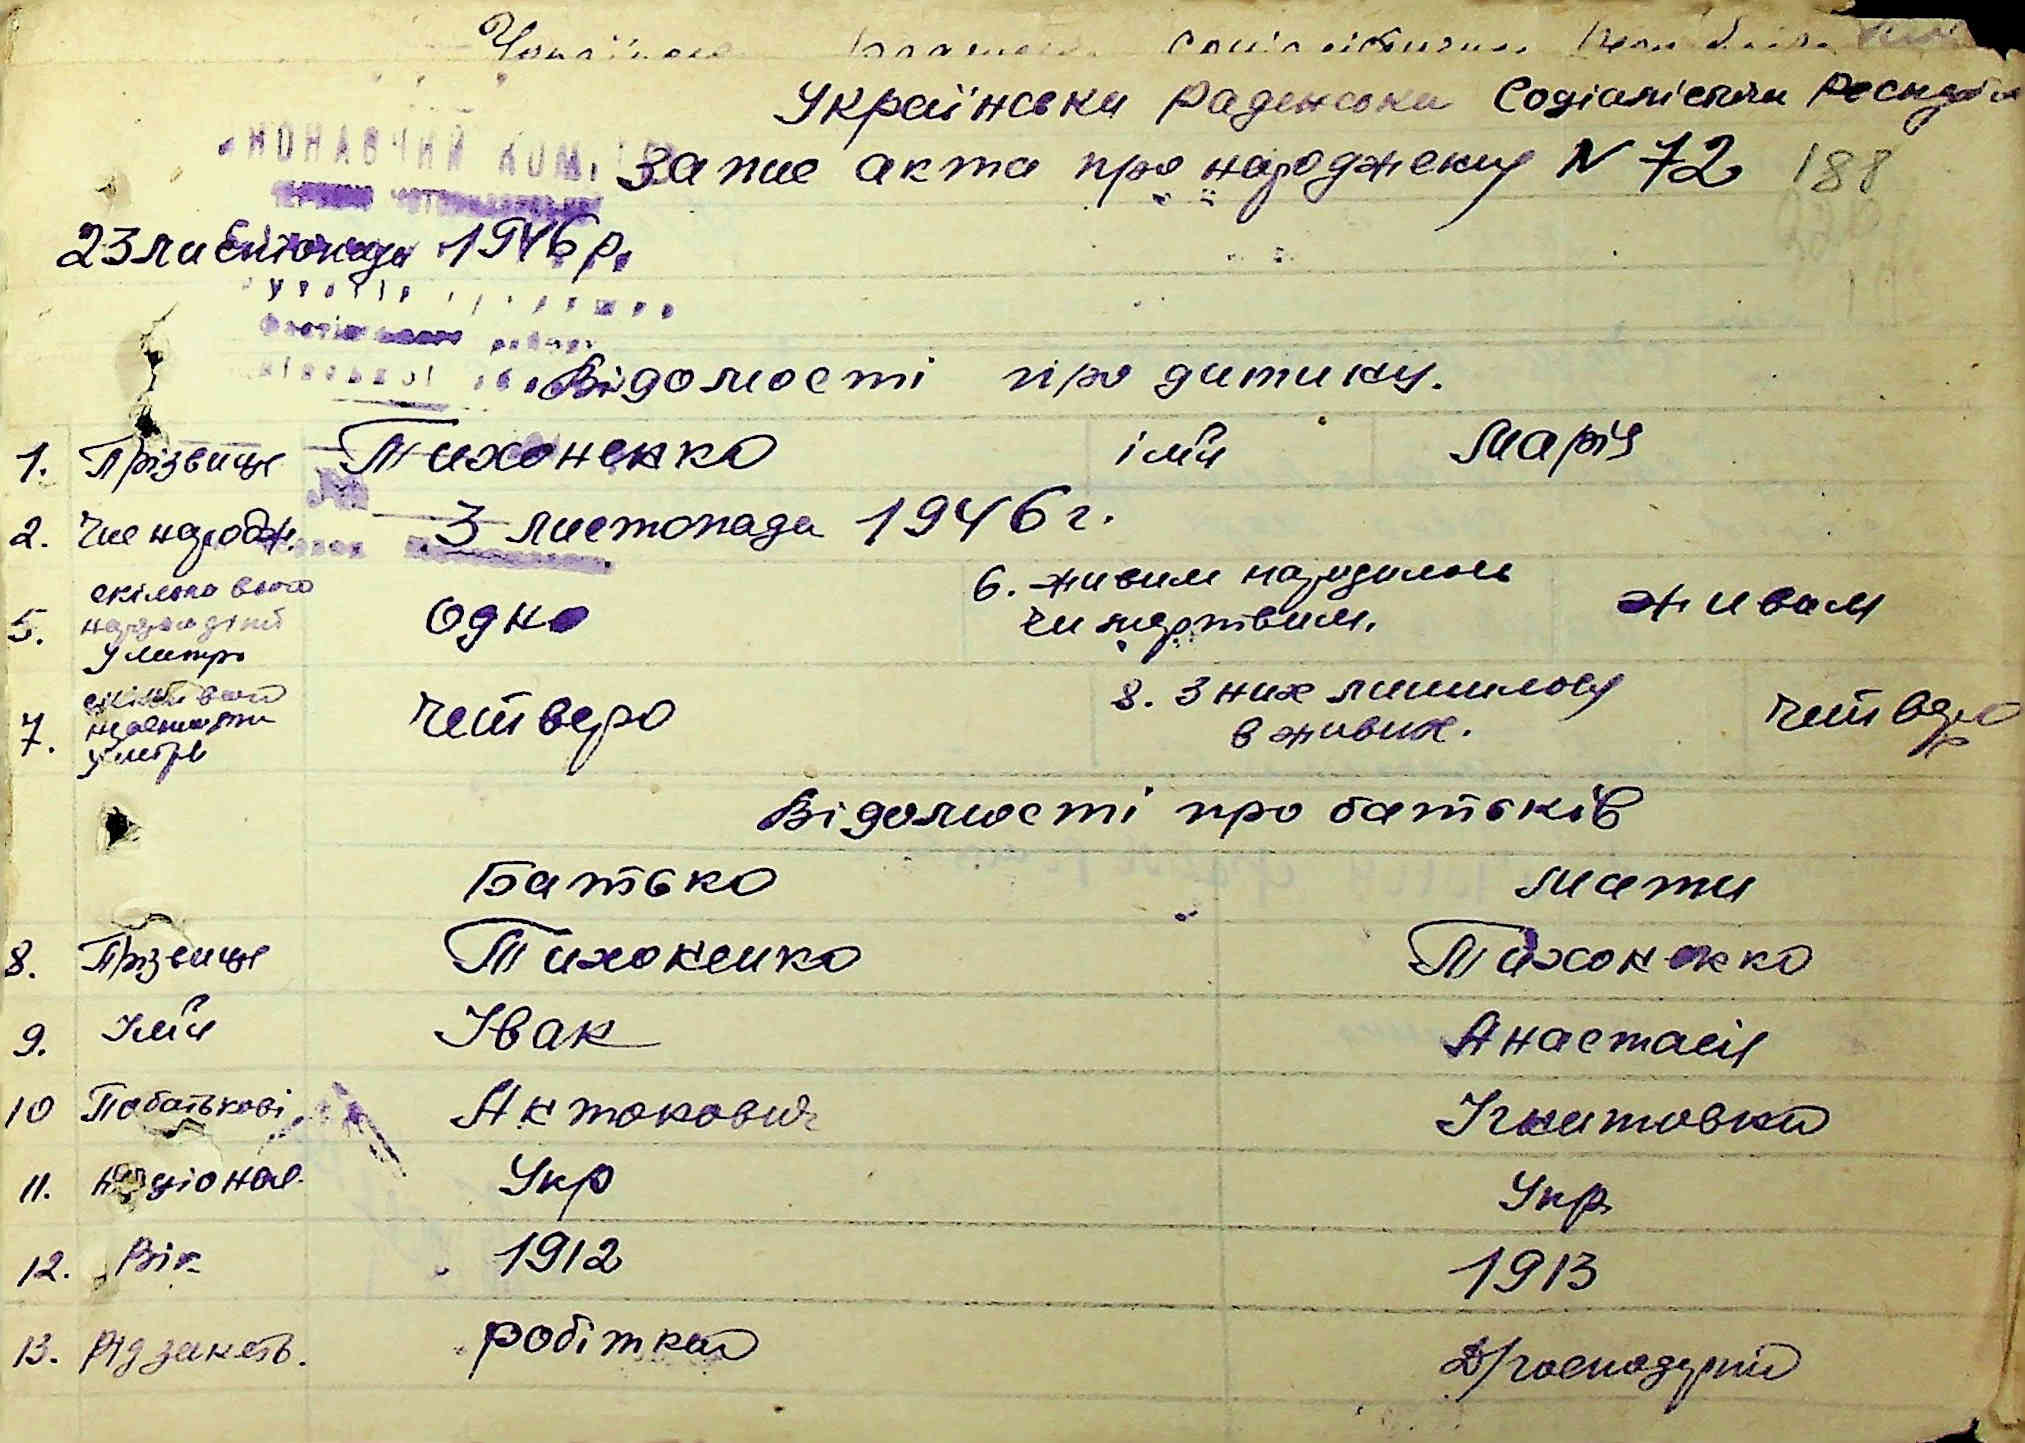 Українська Радянська Соціалістичн Республ
Запис акта про народження N 72 188
23 листопада 1946 р.
Відомості про дитину.
1. Прізвище Тихоненко ім'я Марія
2. Час народж. 3 листопада 1946 г.
5. скільки всього народ. дітей у матрі одно 6. живим народилось чи мертвим. живам
7. у матрі четверо 8. З них лишилося в живих. четверо
Відомості про батьків
Батько мати
8. Прізвище Тихоненко Тихоненко
9. Ім'я Іван Анастасія
10 Побатькові Антонович Ігнатовна
11. націонал. Укр Укр
12. Вік 1912 1913
13. Рід занять. робітник Д/господарка